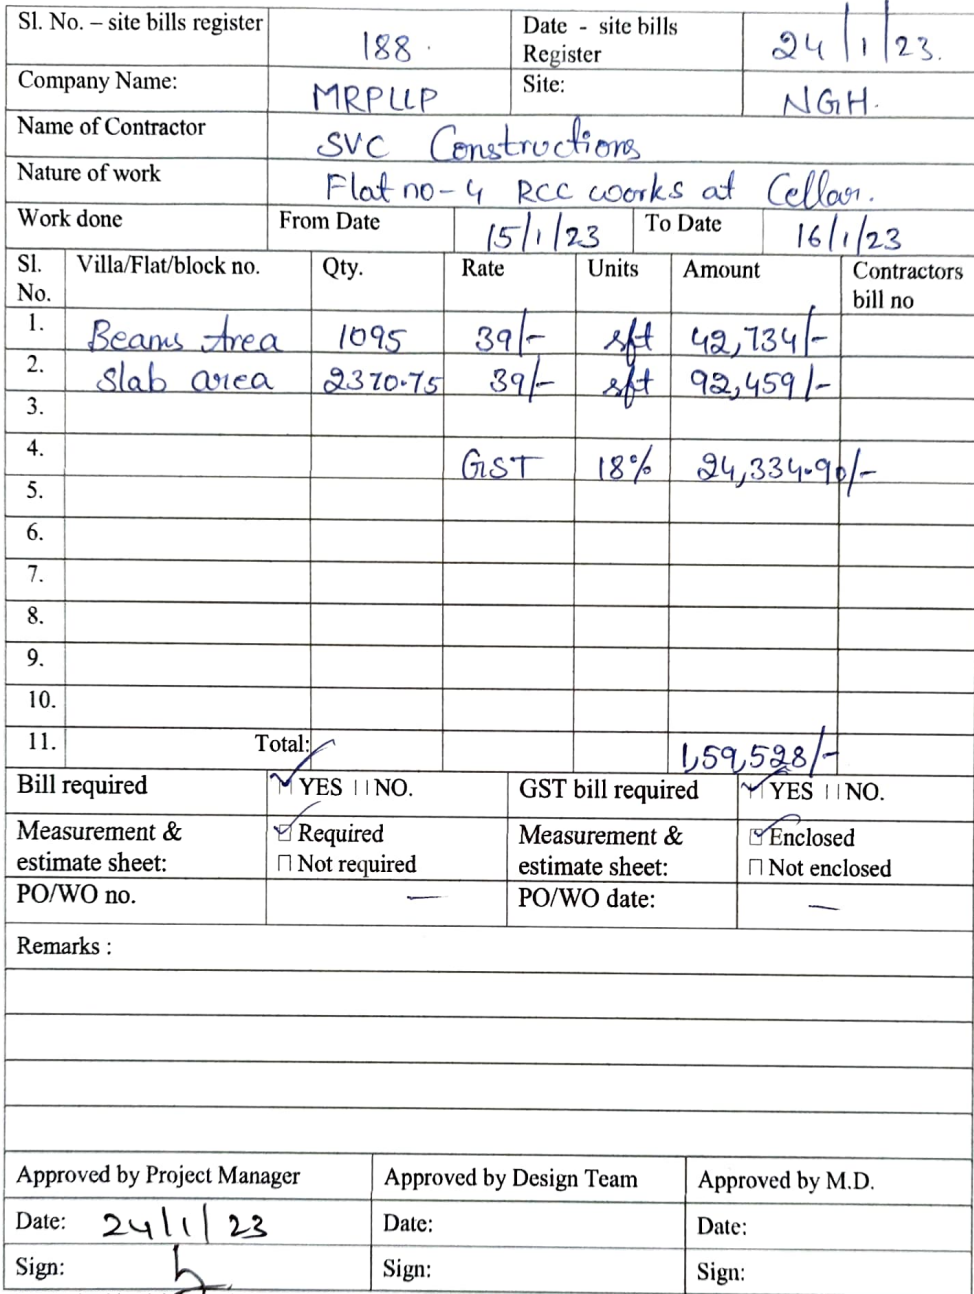 Sl. No. – site bills register 188. Date - site bills Register 24/1/23.
Company Name: MRPLLP Site: NGH.
Name of Contractor SVC Constructions
Nature of work Flat no-4 RCC works at Cellar.
Work done From Date 15/1/23 To Date 16/1/23
Sl. No. Villa/Flat/block no. Qty. Rate Units Amount Contractors bill no
1. Beams Area 1095 39/- sft 42,734/-
2. Slab area 2370.75 39/- sft 92,459/-
3.
4. GST 18% 24,334.90/-
5.
6.
7.
8.
9.
10.
11. Total: 1,59,528/-
Bill required YES NO. GST bill required YES NO.
Measurement & estimate sheet: Required Measurement & estimate sheet: Enclosed
Not required Not enclosed
PO/WO no. — PO/WO date: —
Remarks :
Approved by Project Manager Approved by Design Team Approved by M.D.
Date: 24/1/23 Date: Date:
Sign: Sign: Sign: